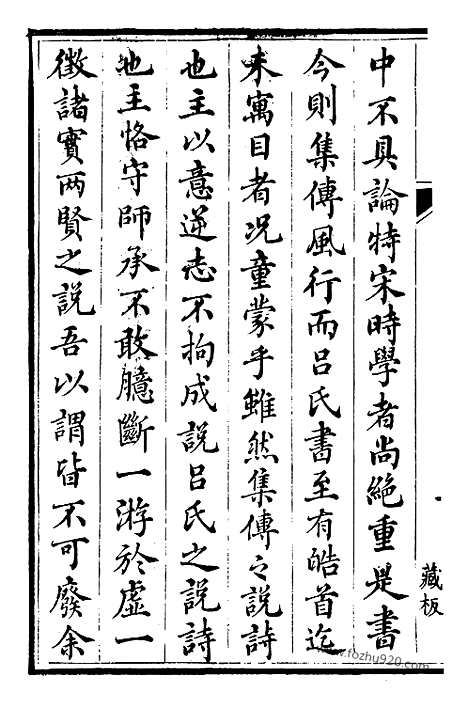 中不具論特宋時學者尚絕重是書
今則集傳風行而吕氏書至有皓首迄
未寓目者况童蒙乎雖然集傳之説詩
也主以意逆志不拘成説吕氏之説詩
也主恪守師承不敢臆斷一游於虛一
徵諸實两賢之説吾以謂皆不可廢余
藏板
www.fozhy920.com